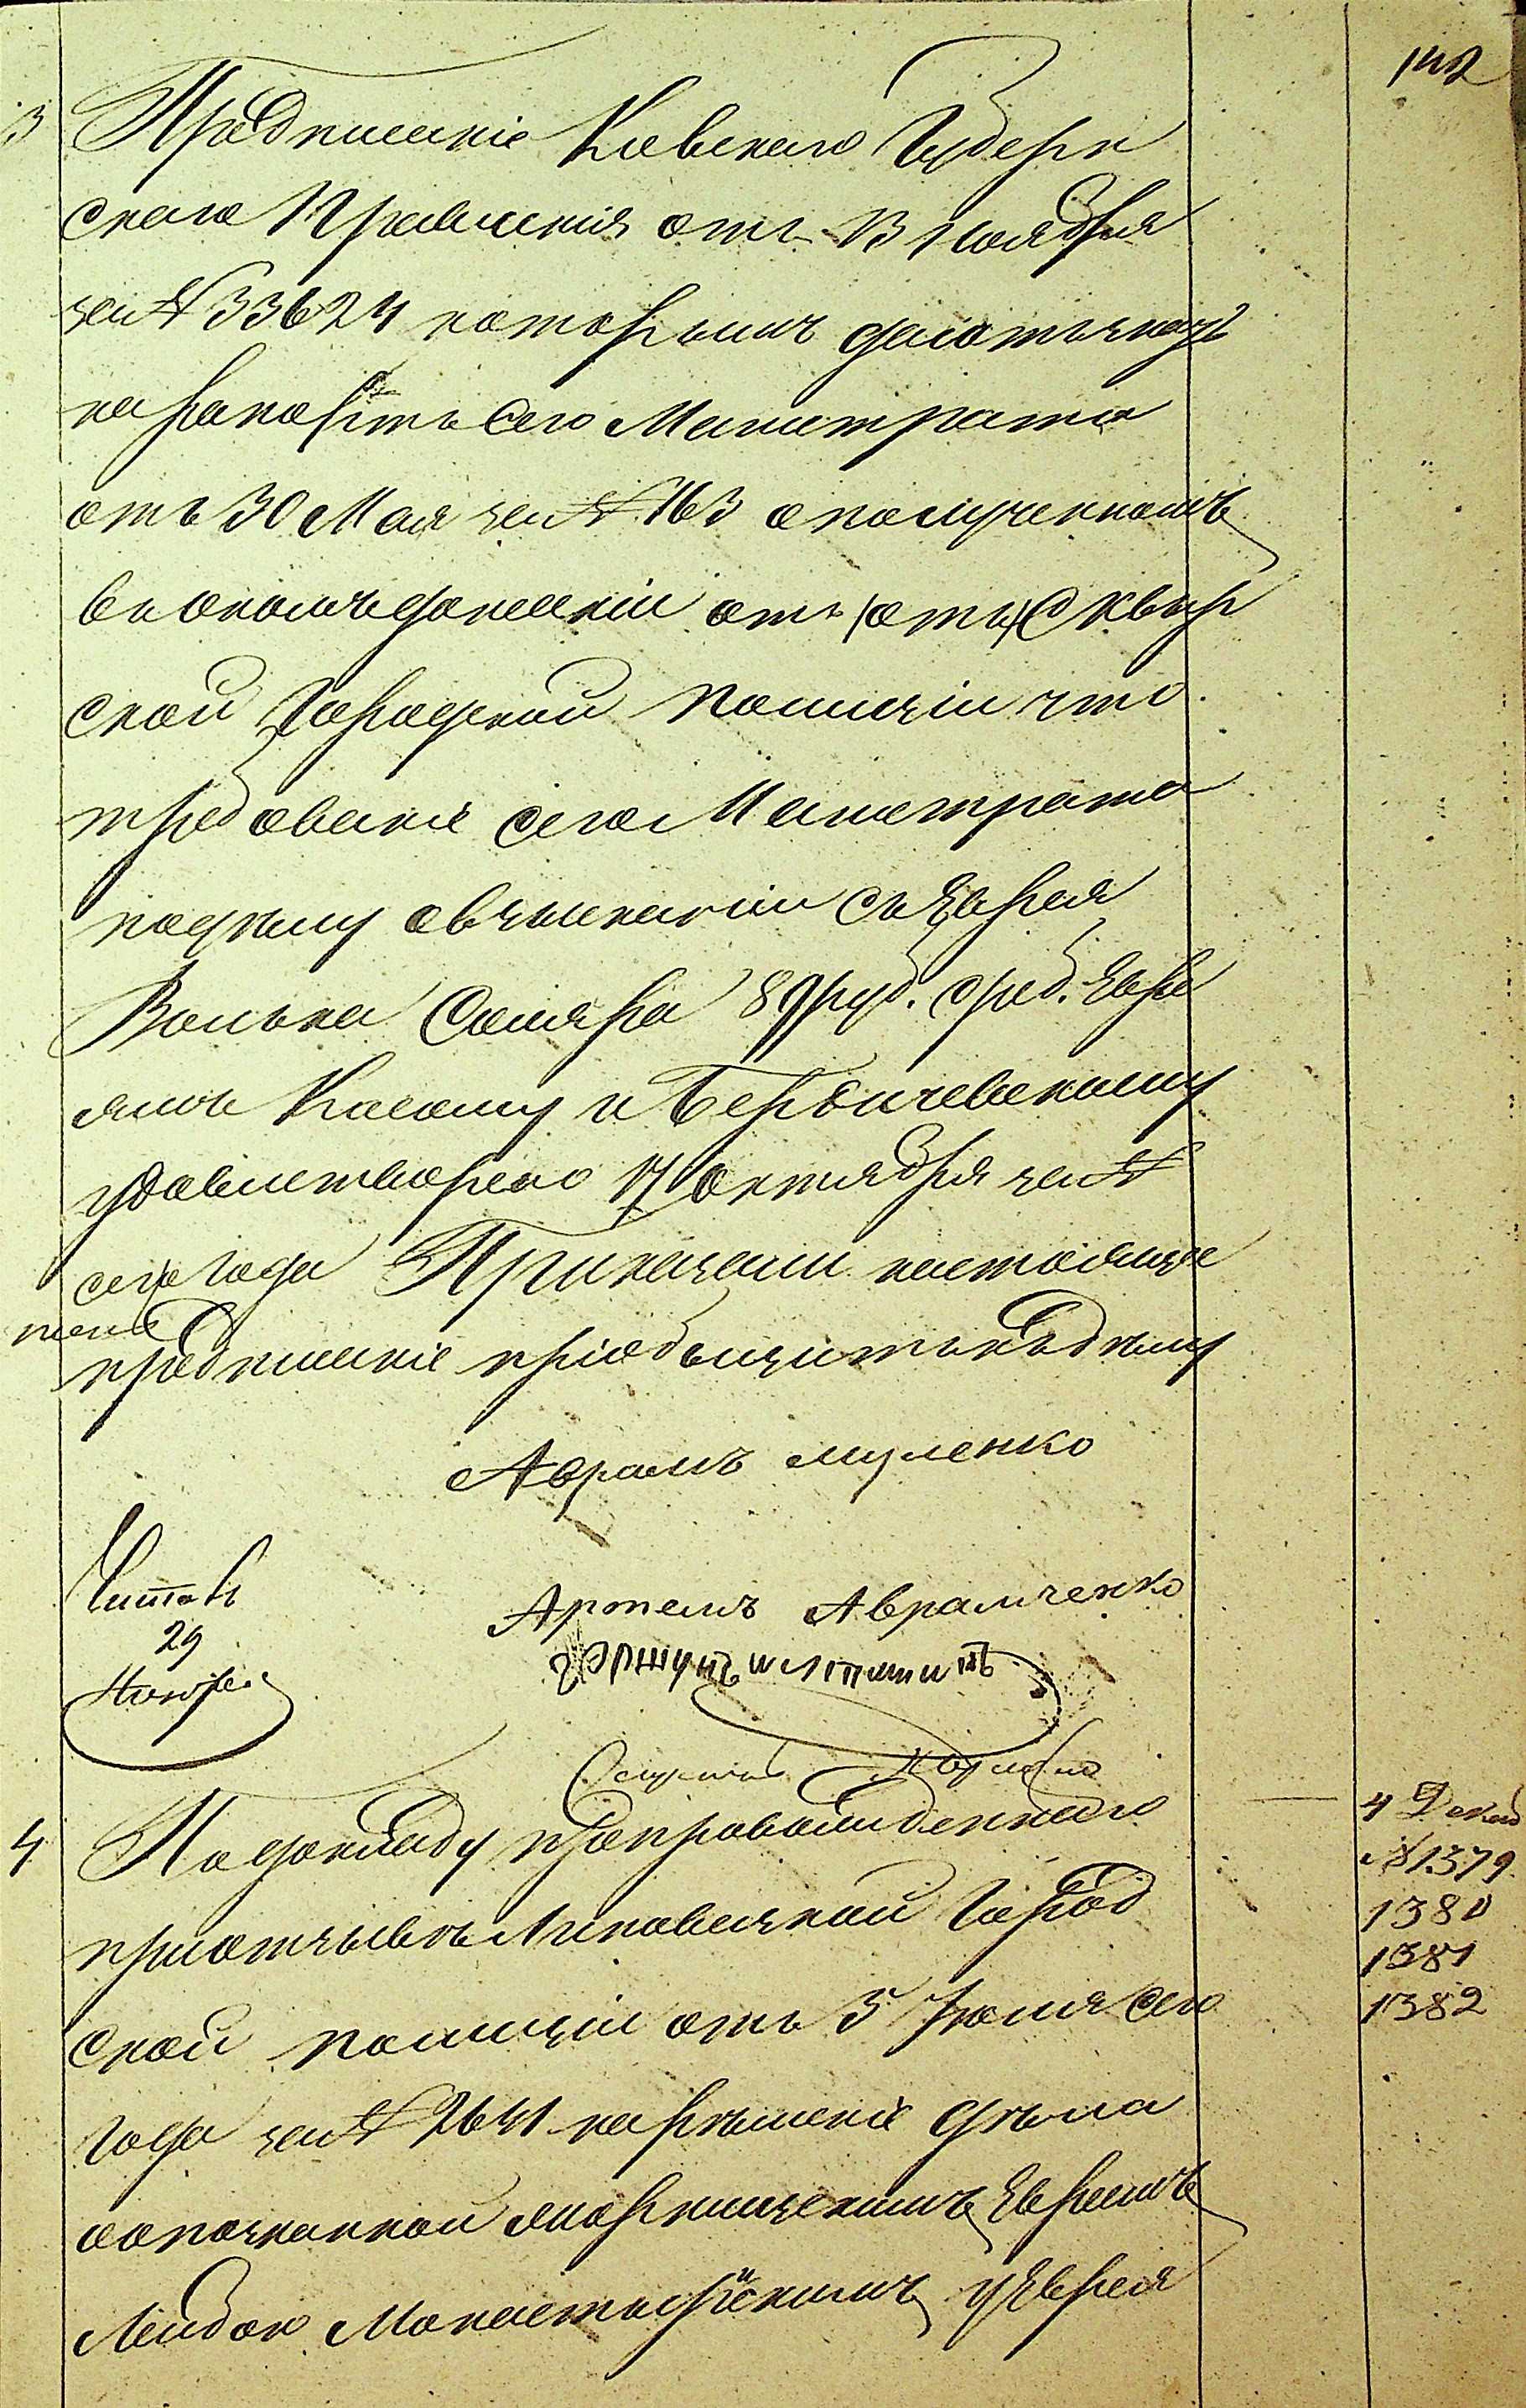 142
3 Предписаніе Кіевскаго Губерн
скаго Правленія отъ 13 Ноября
за № 33624 которымъ
на рапортъ сего Магистрата
отъ 30 Мая за № 163 о полученномъ
донесеніи отъ (отъ) Сквыр
ской Городской Полиціи что
требованіе сего Магистрата
по дѣлу о взысканіи съ Еврея
Волька Столяра 89 руб. сереб. Евре
ямъ Косому и Бердичевскому
удовлетворено 17 Октября за №
сего года Приказали настоящее
предписаніе пріобщить къ дѣлу
Аврамъ Муленко
Читалъ
29
Ноября
Артемъ Аврамченко
4 По докладу препровожденнаго
при отзывѣ Липовецкой Город
ской Полиціи отъ 5 Іюля сего
года за № 2641 на рѣшеніе дѣла
Евреемъ
Лейбою Монастырскимъ у Еврея
4 Декаб
№ 1379
1380
1381
1382